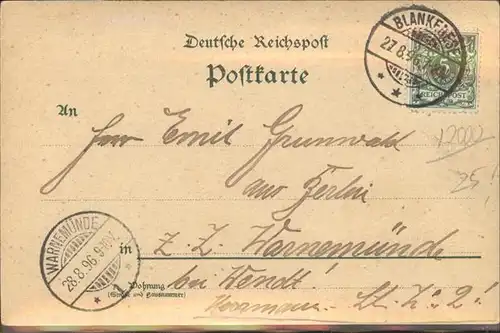 Deutsche Reichspost
Postkarte
BLANKENESE
27.8.96
5
REICHSPOST
An
Herrn Emil Grunwald
aus Berlin
12000
25
in z. Z. Warnemünde
WARNEMÜNDE
28.8.96.9-10V.
Wohnung
(Straße und Hausnummer)
bei Wendt